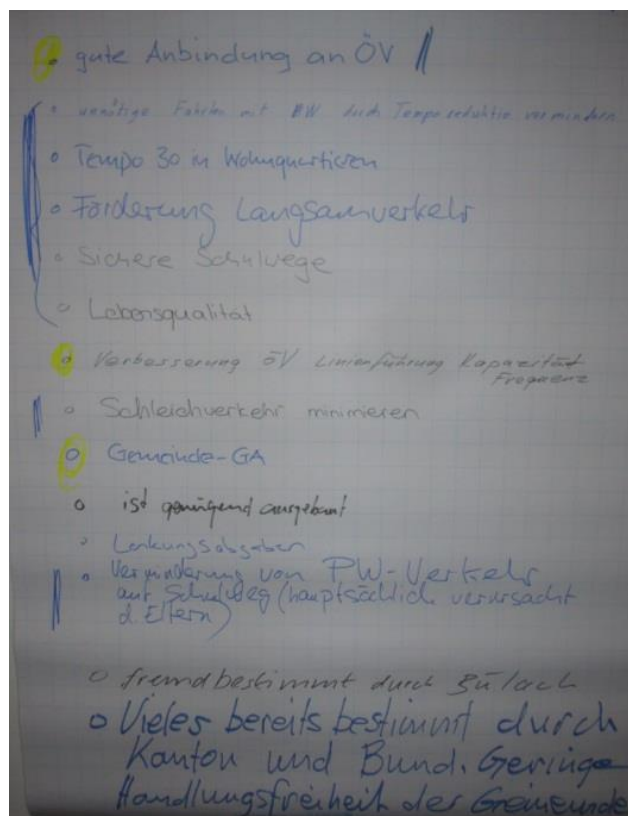 gute Anbindung an ÖV
unnötige Fahrten mit PW durch Temporeduktio vermindern
Tempo 30 in Wohnquartieren
Förderung Langsamverkehr
Sichere Schulwege
Lebensqualität
Verbesserung ÖV Linienführung Kapazität
Frequenz
Schleichverkehr minimieren
Gemeinde-GA
ist genügend ausgebaut
Lenkungsabgaben
Verminderung von PW-Verkehr
auf Schulweg (hauptsächlich verursacht
d. Eltern)
fremdbestimmt durch Bülach
Vieles bereits bestimmt durch
Kanton und Bund. Geringe
Handlungsfreiheit der Gemeinde